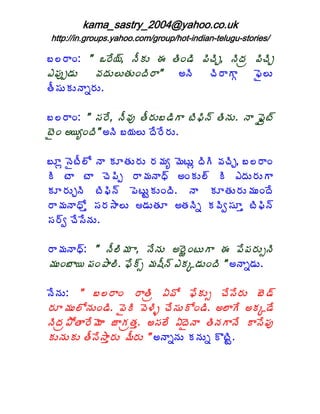 kama_sastry_2004@yahoo.co.uk
http://in.groups.yahoo.com/group/hot-indian-telugu-stories/
బలరాం: " ఒరేయ్, నీకు ఈ తిండి పిచ్చి, నిద్ర పిచ్చి
ఎప్పుడు వదులుతుందిరా" అని చిరాగ్గా ఫైలు
తీసుకున్నారు.
బలరాం: " సరే, నీవు తీరుబడిగా టిఫిన్ తిను. నా ఫ్లైట్
టైం అయ్యింది" అని బయలు దేరేరు.
బ్లూ నైటీలో నా కూతురు రమ్య మెట్లు దిగి వచ్చి, బలరాం
కి టా టా చెప్పి రామనాధ్ అంకుల్ కి ఎదురుగా
కూర్చుని టిఫిన్ పెట్టుకుంది. నా కూతురుముందే
రామనాధ్తో సరసాలు ఆడుతూ అతన్ని కవ్విస్తూ టిఫిన్
సర్వ్ చేసేను.
రామనాధ్: " నీలిమా, నేను అర్జెంటుగా ఈ పేపర్సుని
ముంబాయి పంపాలి. ఫేక్స్ మషీన్ ఎక్కడుంది " అన్నాడు.
నేను: " బలరాం రాత్రి ఏవో ఫేక్సు చేసేరు బెడ్
రూములోనుండి. పైకి వెళ్ళి చేసుకోండి. అలాగే అక్కడే
నిద్రపోతారేమో జాగ్రత్త. అసలే ఏదైనా తినగానే కాసేపు
కునుకు తీసేస్తారు మీరు " అన్నాను కన్ను కొట్టి.